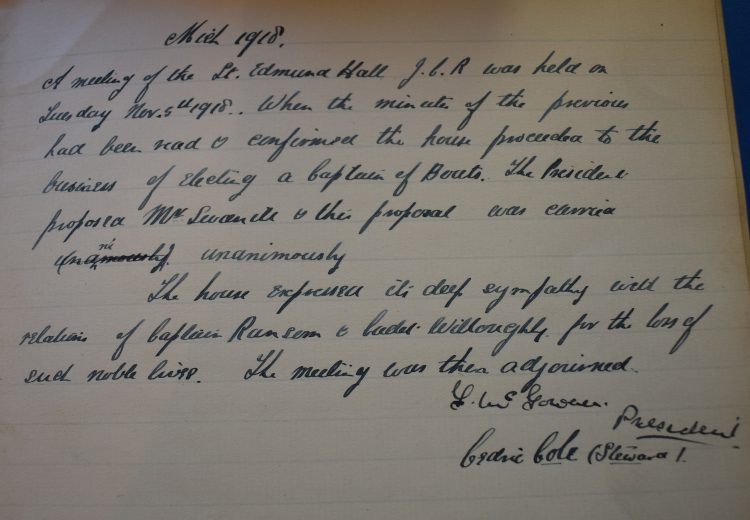 Mich 1918.
A meeting of the St. Edmund Hall J.C.R was held on
Tuesday Nov. 5th 1918.. When the minutes of the previous
had been read & confirmed the house proceeded to the
business of electing a Captain of Boats. The President
proposed Mr & this proposal was carried
unanimously
The house expressed its deep sympathy with the
relations of Captain Ransom & Cadet Willoughby for the loss of
such noble lives. The meeting was then adjourned.
President
Cedric Cole (Steward).